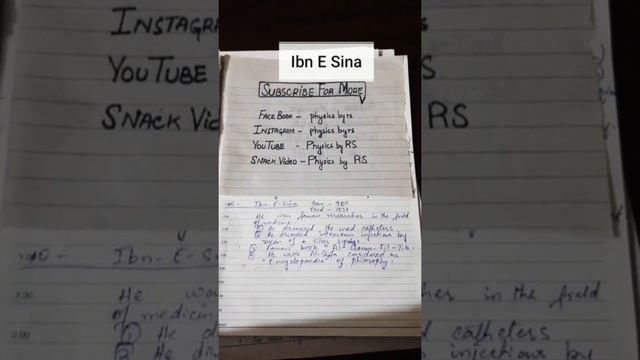 Ibn E Sina
SUBSCRIBE FOR MORE
FACEBOOK - physics by rs
INSTAGRAM - physics by rs
YOUTUBE - Physics by RS
SNACK VIDEO - Physics by RS
Ibn-E-Sina Born - 980
Died - 1037
He was famous researcher in the field
of medicine.
① He discovered He used catheters
② He discovered intravenous injections by
mean of a silver syringe
③ Famous book is Al-Qanun-Fil-Tib.
④ He wrote Al-Shifa considered as
"Encyclopaedia" of philosophy.
INSTAGRA
YOUTUBE
SNACK Vid
S
RS
Ibn-E-S
1:30
He wo
in the field
of medicin
2:00
① He d
catheters
② He di
injections by